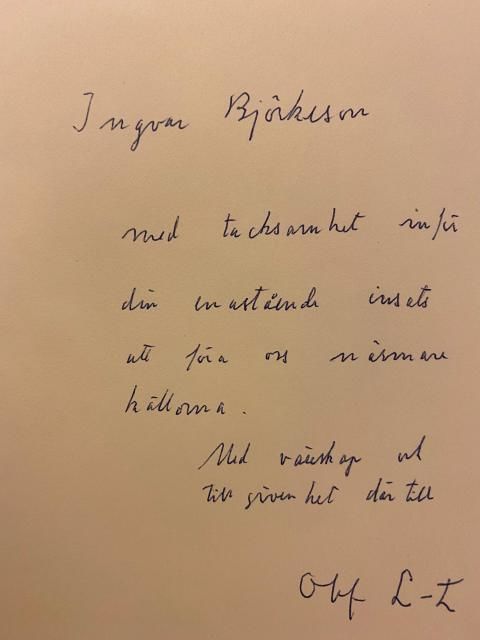 Ingvar Björkeson
med tacksamhet inför
din enastående insats
att föra oss närmare
källorna.
Med vänskap och
tillgivenhet därtill
Olof L-L